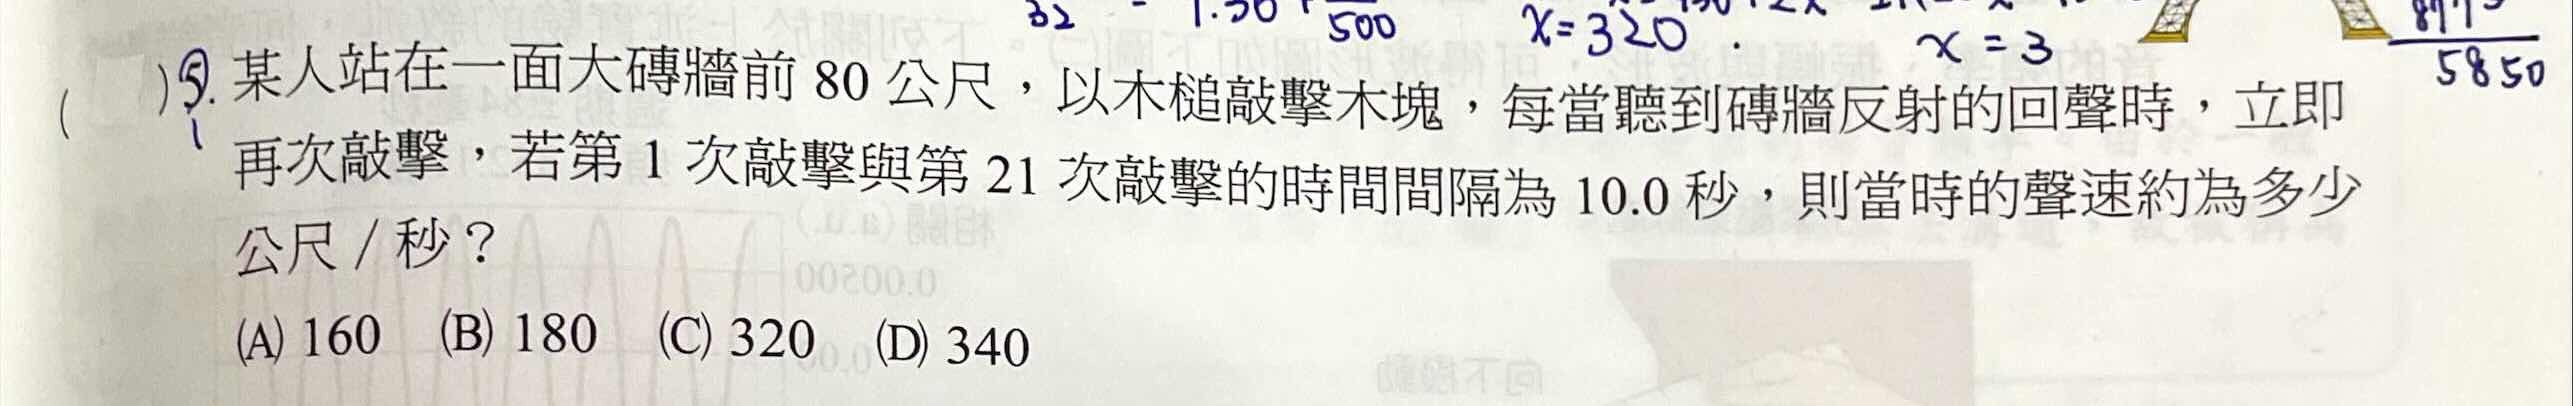 32
500
x=320
x=3
5850
( )5. 某人站在一面大磚牆前 80 公尺，以木槌敲擊木塊，每當聽到磚牆反射的回聲時，立即
再次敲擊，若第 1 次敲擊與第 21 次敲擊的時間間隔為 10.0 秒，則當時的聲速約為多少
公尺 / 秒？
(A) 160 (B) 180 (C) 320 (D) 340